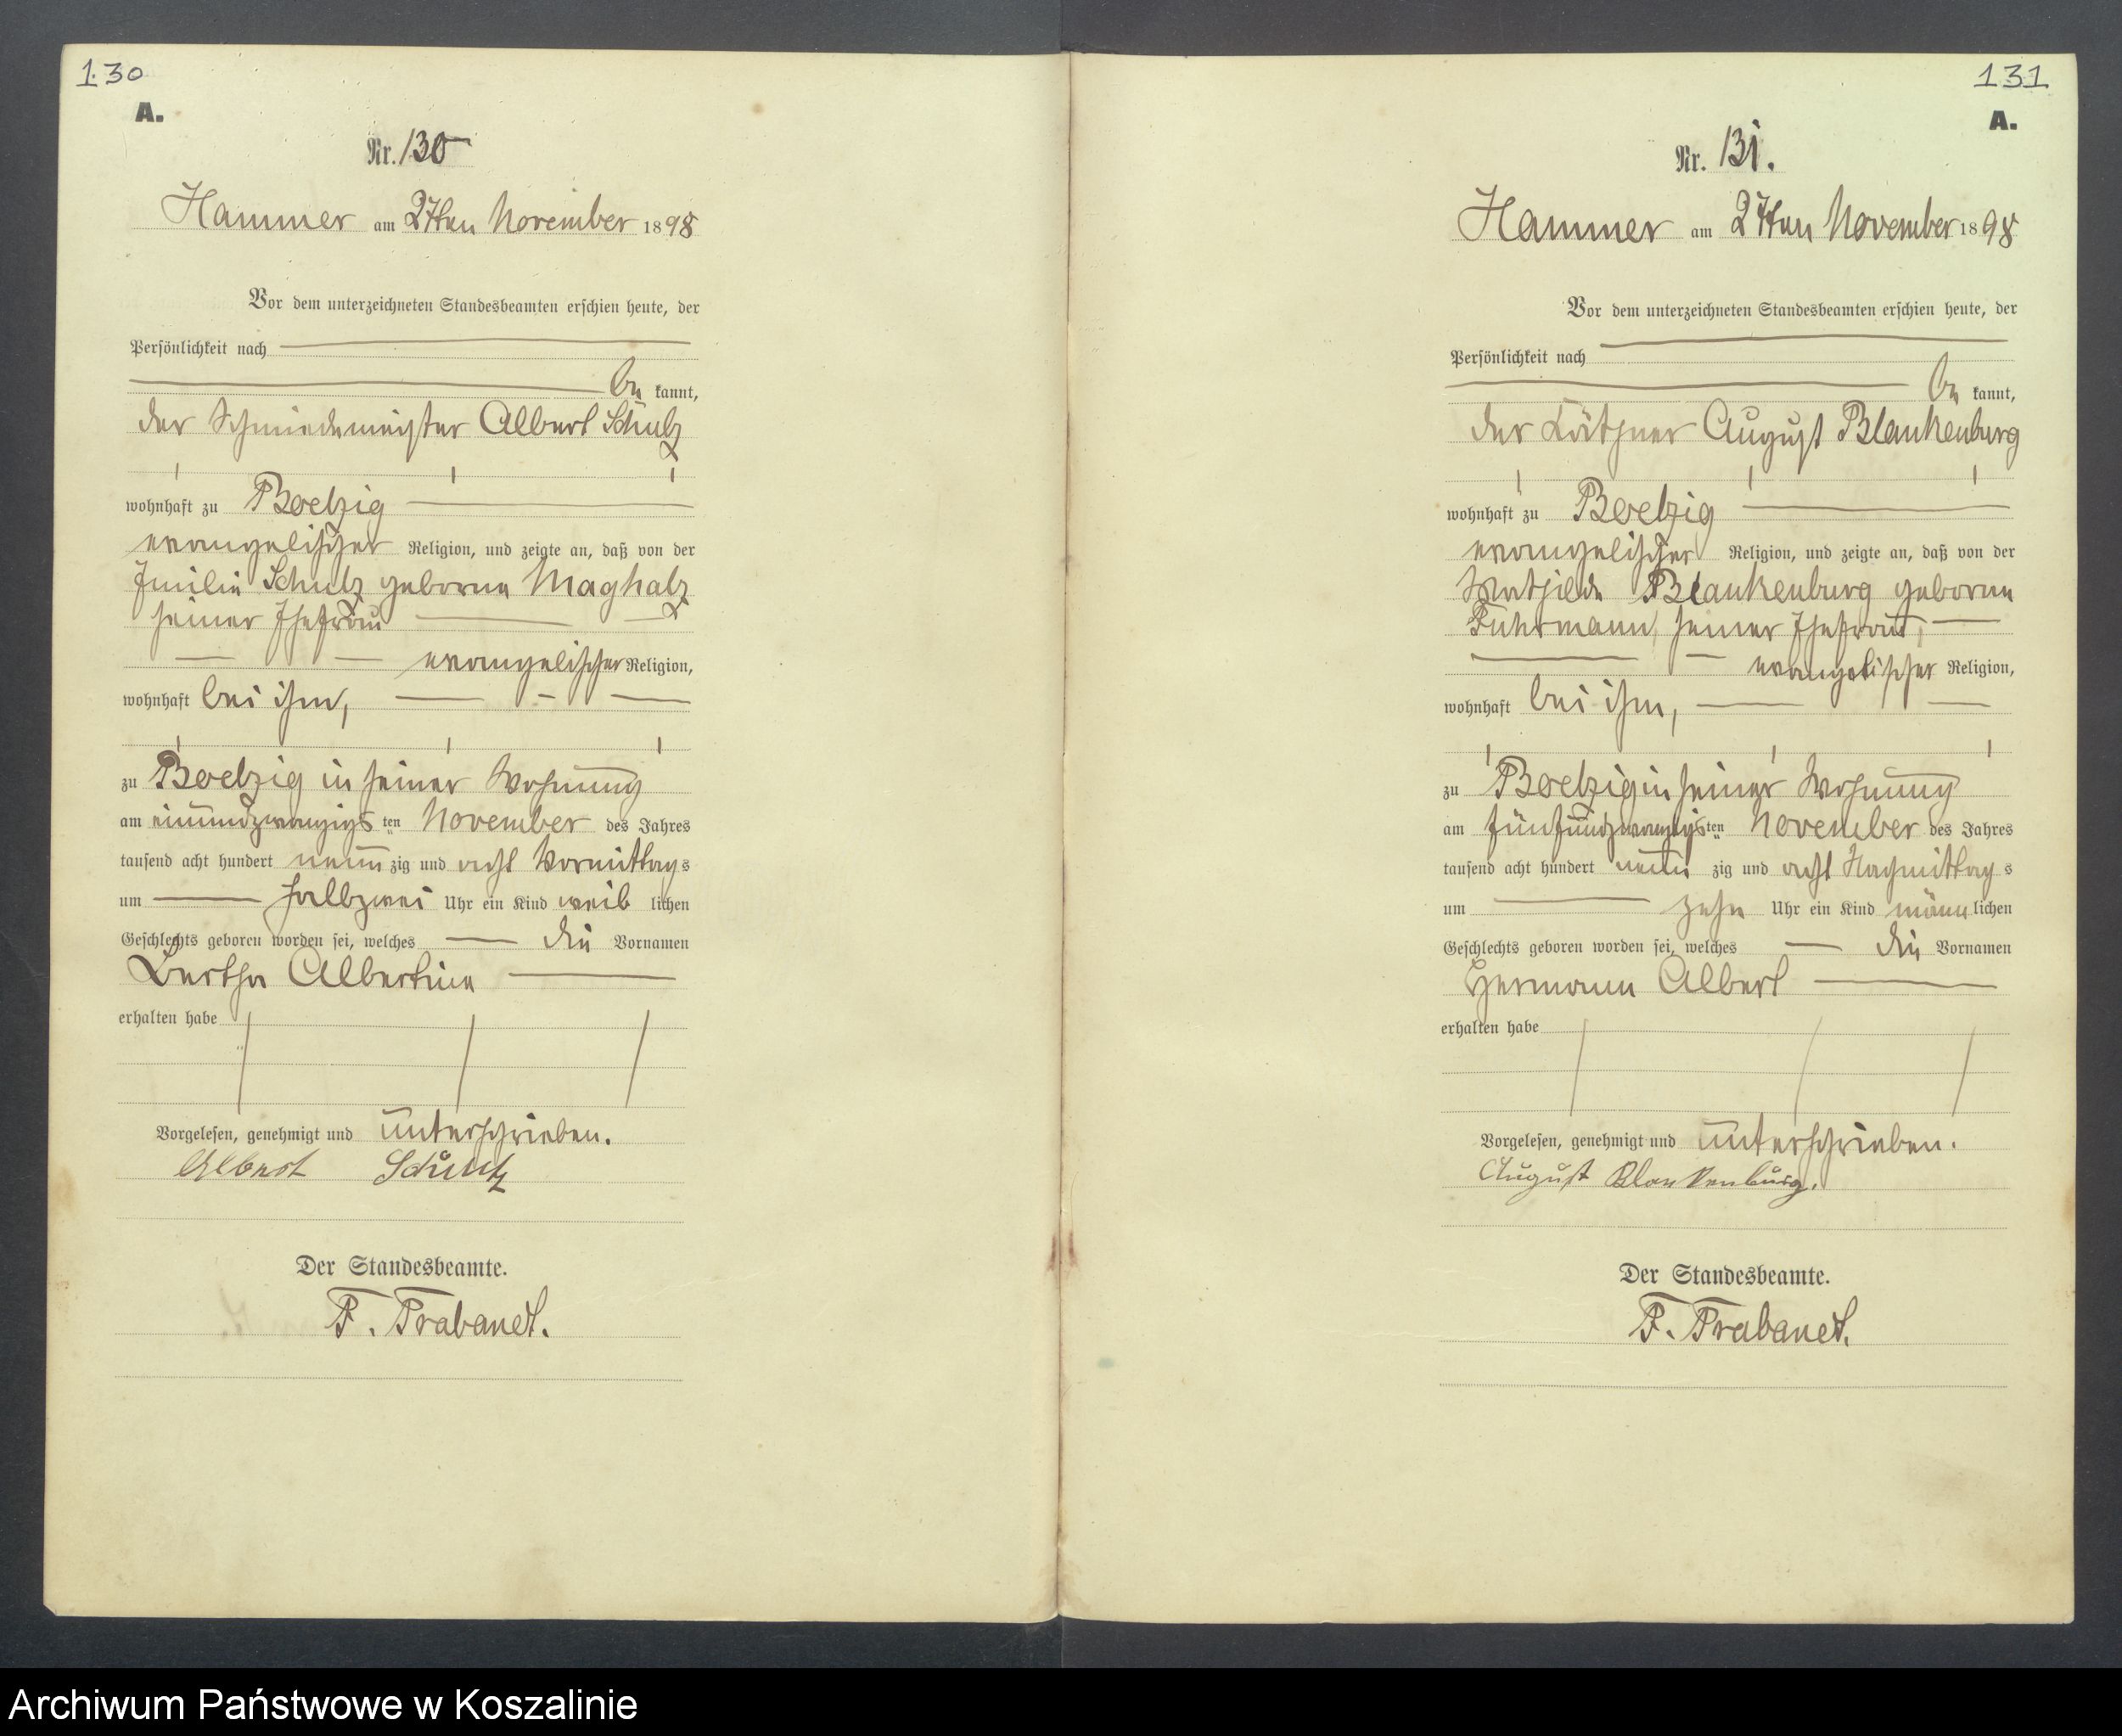 130
A.
Nr. 130
Hammer am 27ten November 1898
Vor dem unterzeichneten Standesbeamten erschien heute, der
Persönlichkeit nach
be kannt,
der Schmiedemeister Albert Schulz
wohnhaft zu Boelzig
evangelischer Religion, und zeigte an, daß von der
Emilie Schulz geborne Maghalz
seiner Ehefrau
evangelischer Religion,
wohnhaft bei ihm,
zu Boelzig in seiner Wohnung
am einundzwanzigsten November des Jahres
tausend acht hundert neunzig und acht Vormittags
um halbzwei Uhr ein Kind weiblichen
Geschlechts geboren worden sei, welches die Vornamen
Bertha Albertine
erhalten habe
Vorgelesen, genehmigt und unterschrieben.
Albert Schulz
Der Standesbeamte.
F. Trabandt.
131
A.
Nr. 131.
Hammer am 27ten November 1898
Vor dem unterzeichneten Standesbeamten erschien heute, der
Persönlichkeit nach
be kannt,
der Käthner August Blankenburg
wohnhaft zu Boelzig
evangelischer Religion, und zeigte an, daß von der
Mathilde Blankenburg geborne
Fuhrmann, seiner Ehefrau,
evangelischer Religion,
wohnhaft bei ihm,
zu Boelzig in seiner Wohnung
am fünfundzwanzigsten November des Jahres
tausend acht hundert neunzig und acht Nachmittags
um zehn Uhr ein Kind männlichen
Geschlechts geboren worden sei, welches die Vornamen
Hermann Albert
erhalten habe
Vorgelesen, genehmigt und unterschrieben.
August Blankenburg.
Der Standesbeamte.
F. Trabandt.
Archiwum Państwowe w Koszalinie